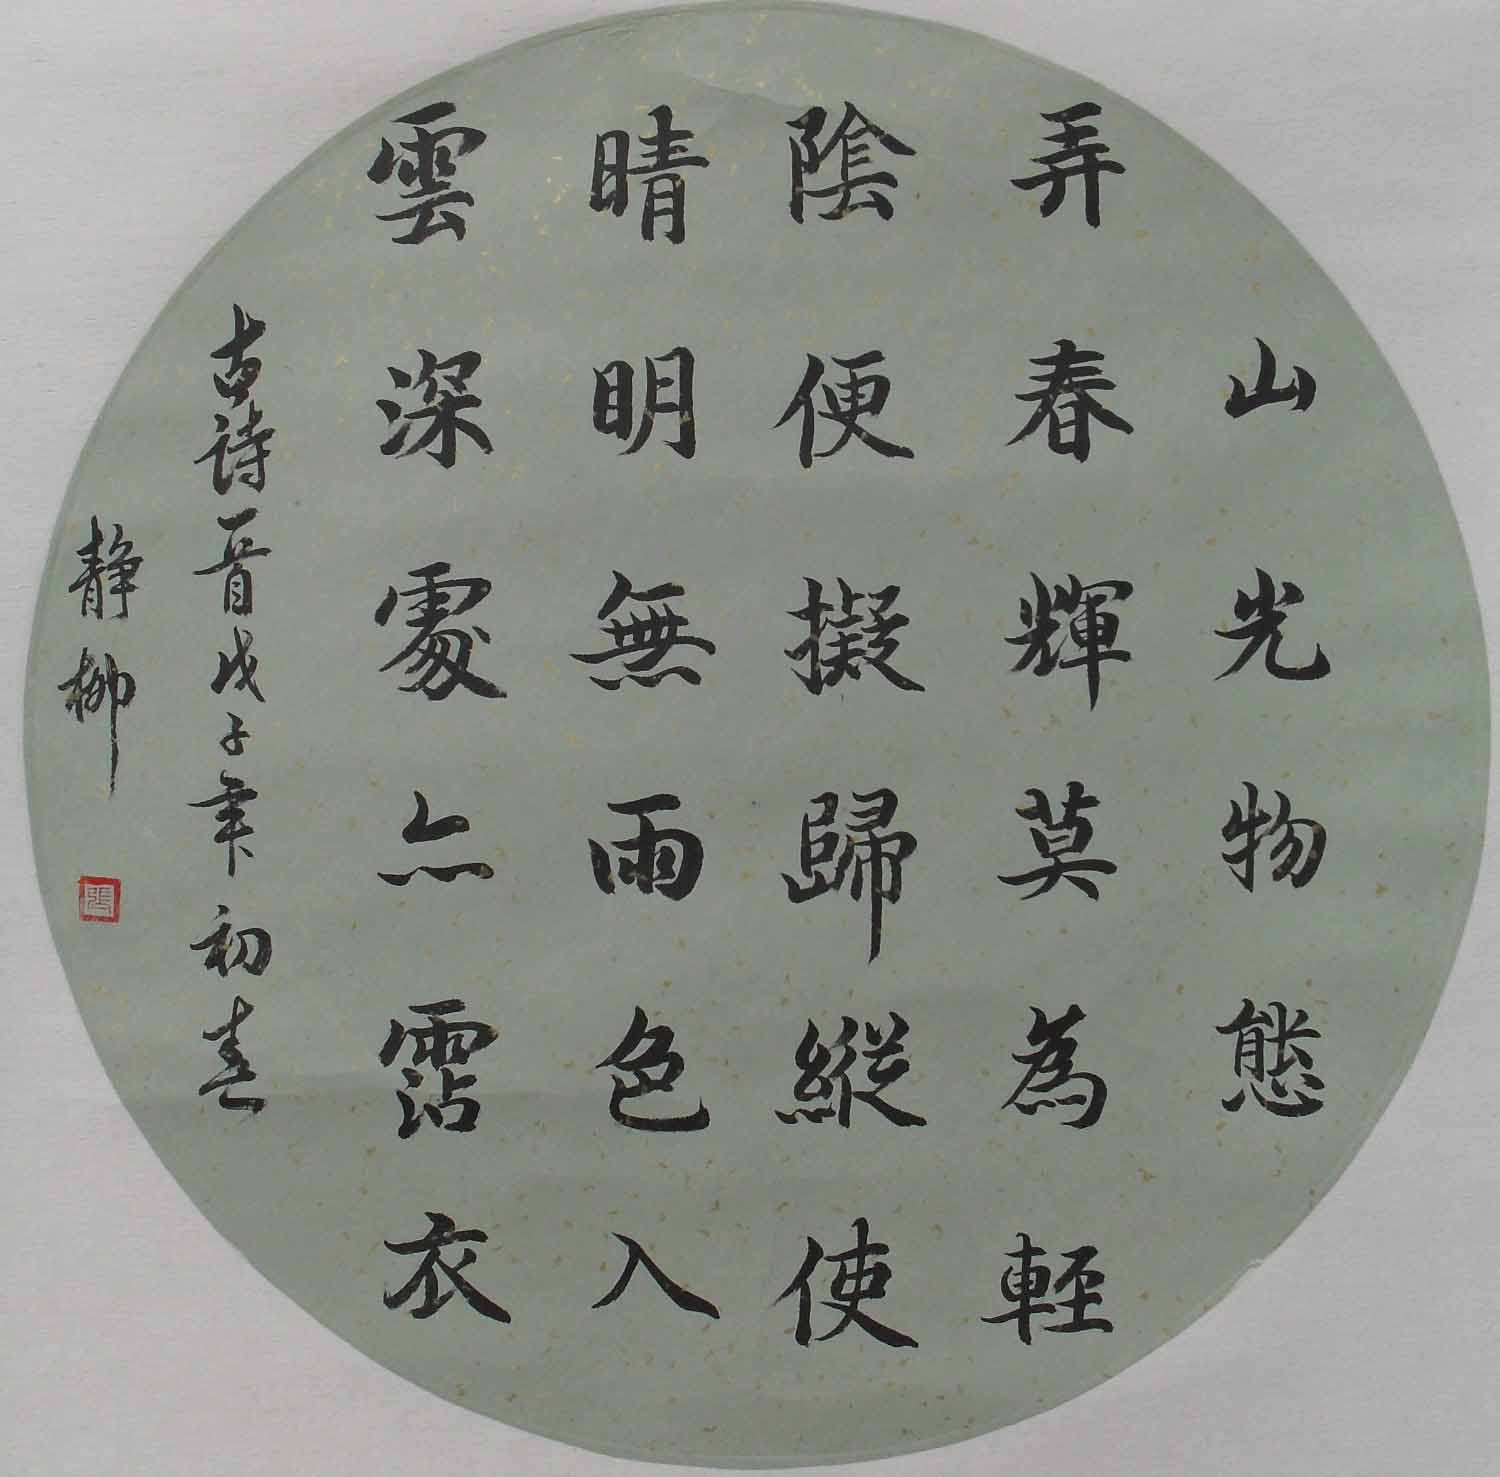 山光物態
弄春輝莫為輕
陰便擬歸縱使
晴明無雨色入
雲深處亦霑衣
古诗一首戊子年初春
静柳